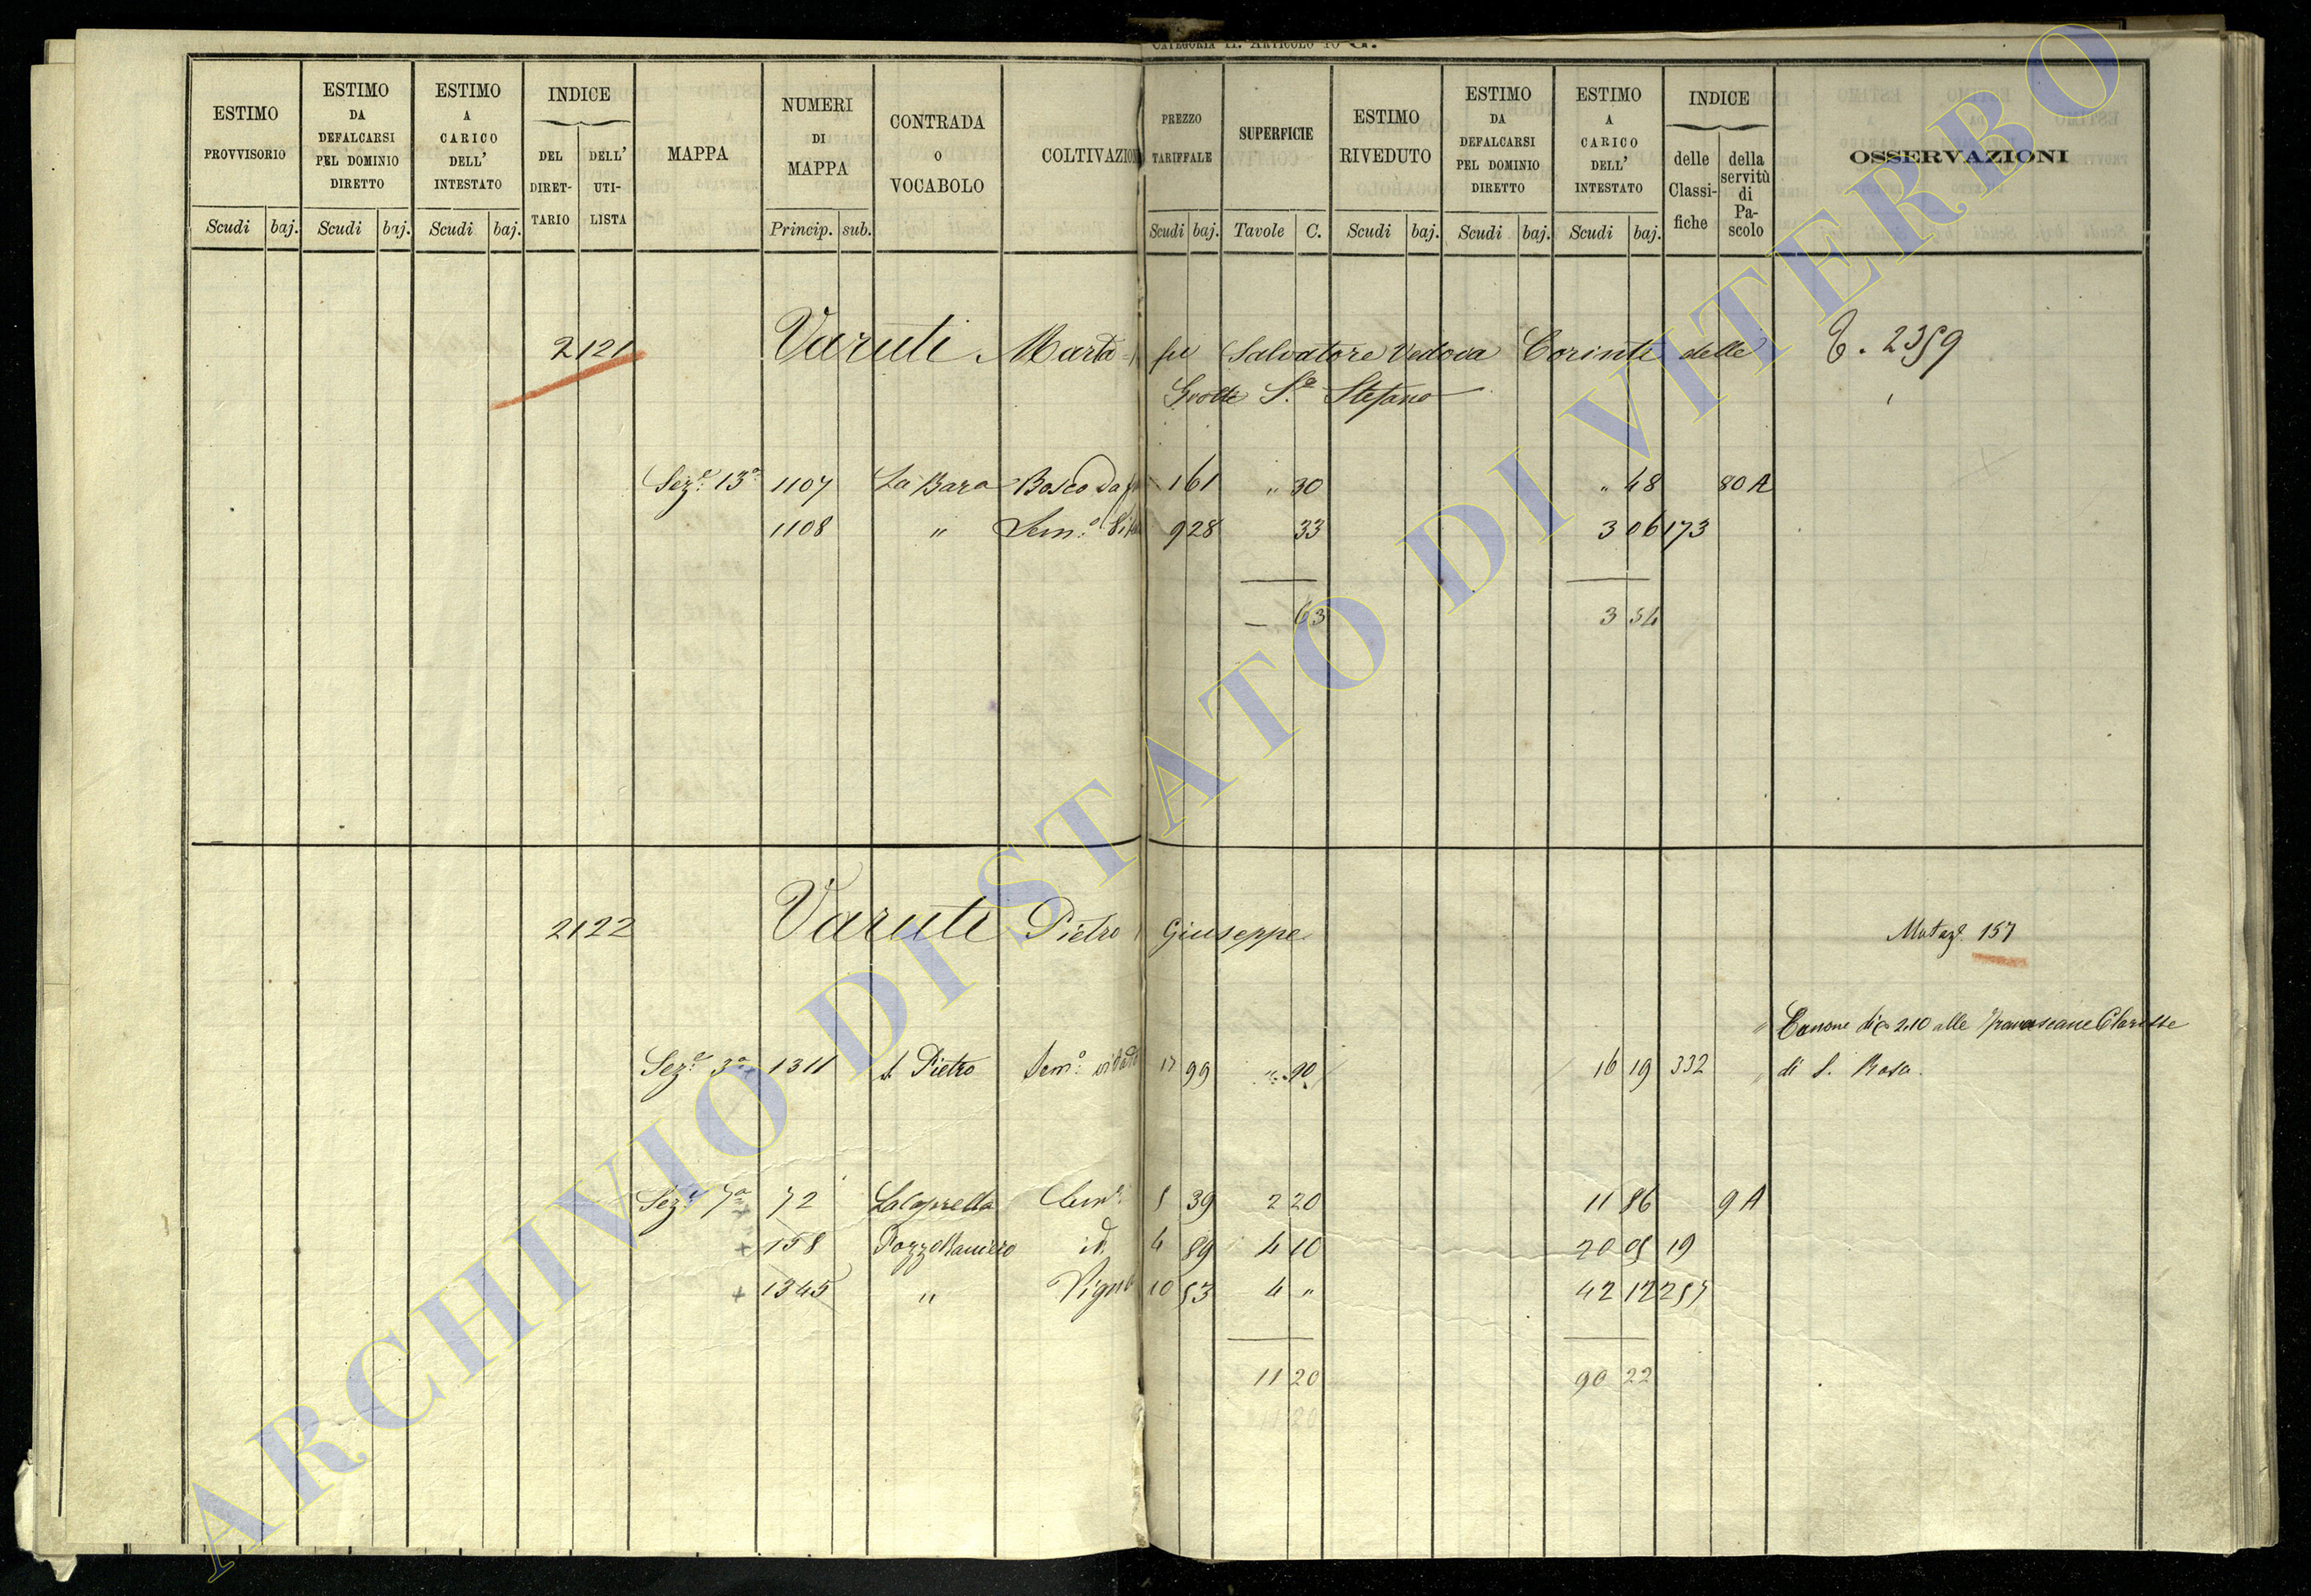 CATEGORIA II. ARTICOLO 10 G.
ESTIMO PROVVISORIO Scudi baj.
ESTIMO DA DEFALCARSI PEL DOMINIO DIRETTO Scudi baj.
ESTIMO A CARICO DELL' INTESTATO Scudi baj.
INDICE DEL DIRETTARIO DELL' UTILISTA
MAPPA
NUMERI DI MAPPA Princip. sub.
CONTRADA O VOCABOLO
COLTIVAZION
PREZZO TARIFFALE Scudi baj.
SUPERFICIE Tavole C.
ESTIMO RIVEDUTO Scudi baj.
ESTIMO DA DEFALCARSI PEL DOMINIO DIRETTO Scudi baj.
ESTIMO A CARICO DELL' INTESTATO Scudi baj.
INDICE delle Classifiche della servitù di Pascolo
OSSERVAZIONI
2121 Varuti Marta fu Salvatore Vedova Corinti delle 2359
Grotte S.º Stefano
Sez.e 13a 1107 La Bara Bosco da 1 61 " 30 " 48 80 A
1108 " Sem.o 9 28 33 3 06 173
— 63 3 54
2122 Varuti Pietro Giuseppe Mutaz.e 157
" Canone di 2.10 alle Francescane Clarisse
Sez.e 3a 1311 S. Pietro Sem.o vitato 17 99 " 90 16 19 332 " di S. Rosa.
Sez.e 7a 72 La Caprella 5 39 2 20 11 86 9 A
+ 158 Pozzo Raniero id. 4 89 4 10 20 05 19
+ 1345 " Vigna 10 53 4 " 42 12 257
11 20 90 22
11 20
ARCHIVIO DI STATO DI VITERBO